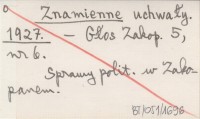 Znamienne uchwały.
1927. – Głos Zakop. 5,
nr 6.
Sprawy polit. w Zako-
panem.
BJ/OS1/1696